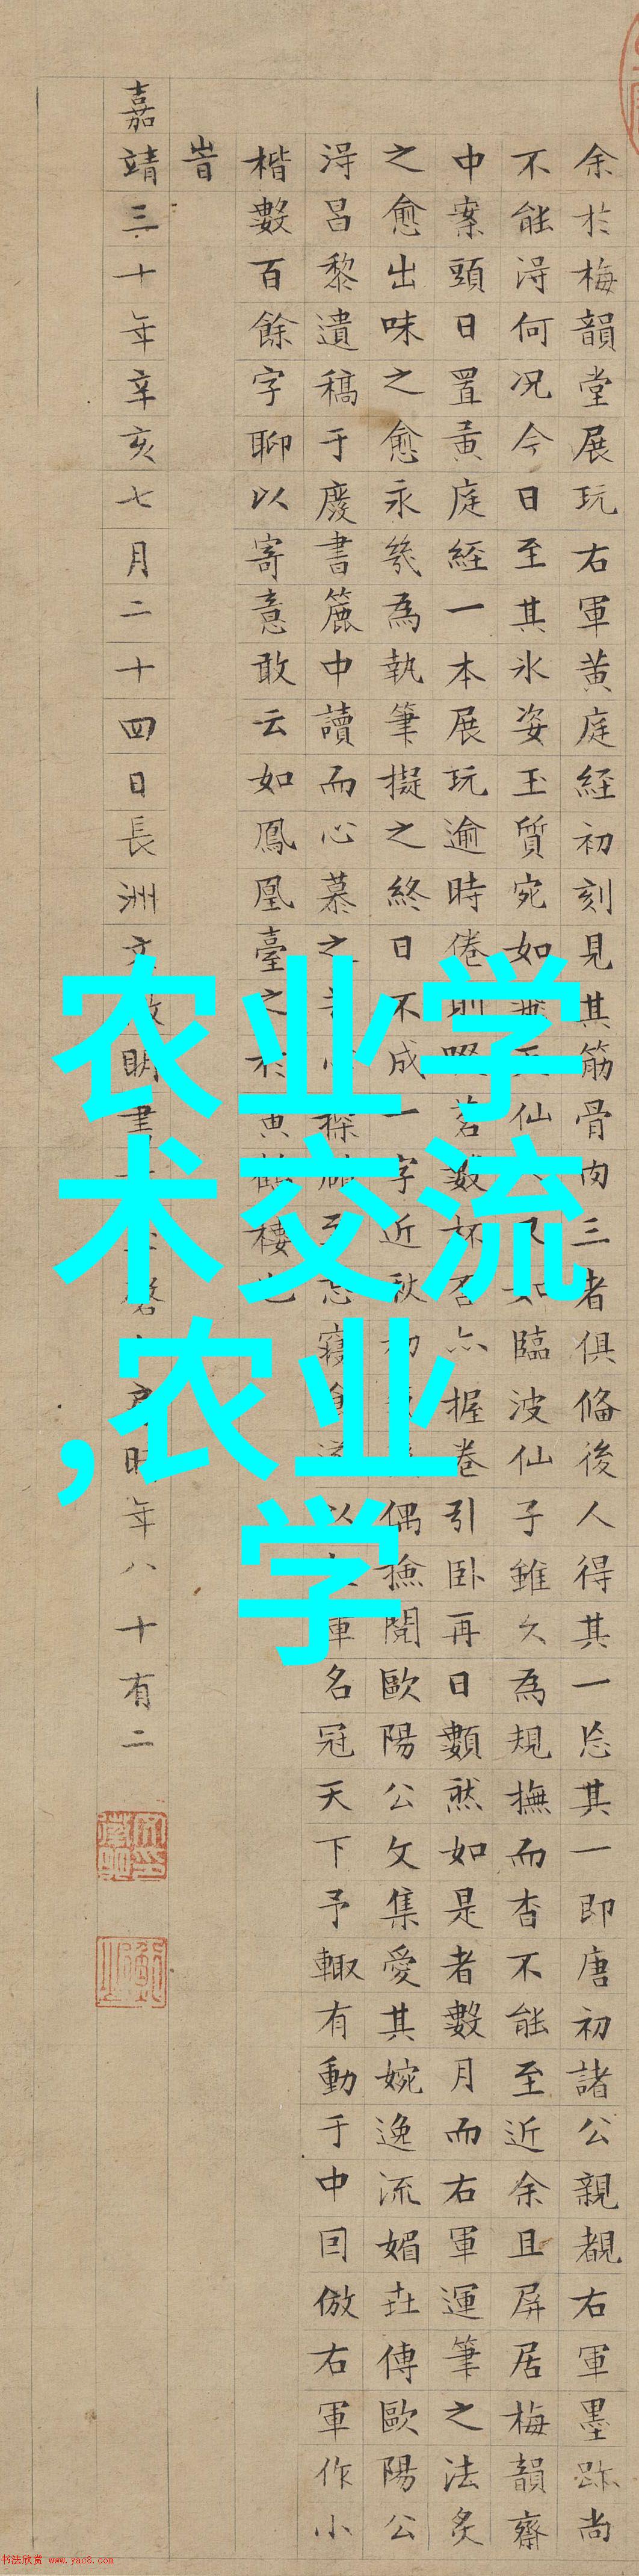 余於梅韻堂展玩右軍黄庭経初刻見其筋骨肉三者俱俻後人得其一忘其一即唐初諸公親覩右軍墨跡尚
不能淂何况今日至其氷姿玉質宛如仙如臨波仙子雖久為規撫而杳不能至近余且屏居梅韻齋
中案頭日置黄庭経一本展玩逾時倦則啜茗數杯否亦握卷引卧再日數然如是者數月而右軍運筆之法炙
之愈出味之愈永幾為執筆擬之終日不成一字近秋初偶撿閱歐陽公文集愛其婉逸流媚因傳歐陽公
淂昌黎遺稿于廢書簏中讀而心慕之探寢食以軍名冠天下予輙有動于中囙倣右軍作小
楷數百餘字聊以寄意敢云如鳳凰臺之於黄鶴樓也
旹
嘉靖三十年辛亥七月二十四日長洲文徵明書時年八十有二
农业学
术交流
,农业
学
书法欣赏 www.yac8.com